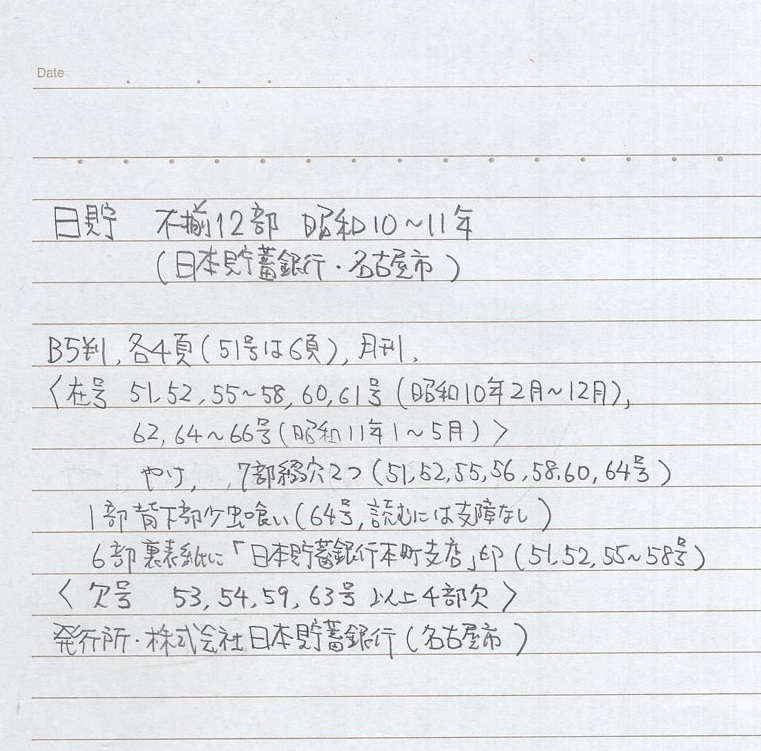 Date
日貯 不揃12部 昭和10~11年
(日本貯蓄銀行・名古屋市)
B5判, 各4頁(51号は6頁), 月刊,
〈在号 51, 52, 55~58, 60, 61号(昭和10年2月~12月),
62, 64~66号(昭和11年1~5月)〉
やけ, , 7部綴穴2つ(51, 52, 55, 56, 58, 60, 64号)
1部背下部少虫喰い(64号, 読むには支障なし)
6部裏表紙に「日本貯蓄銀行本町支店」印(51, 52, 55~58号)
〈欠号 53, 54, 59, 63号 以上4部欠〉
発行所・株式会社日本貯蓄銀行(名古屋市)